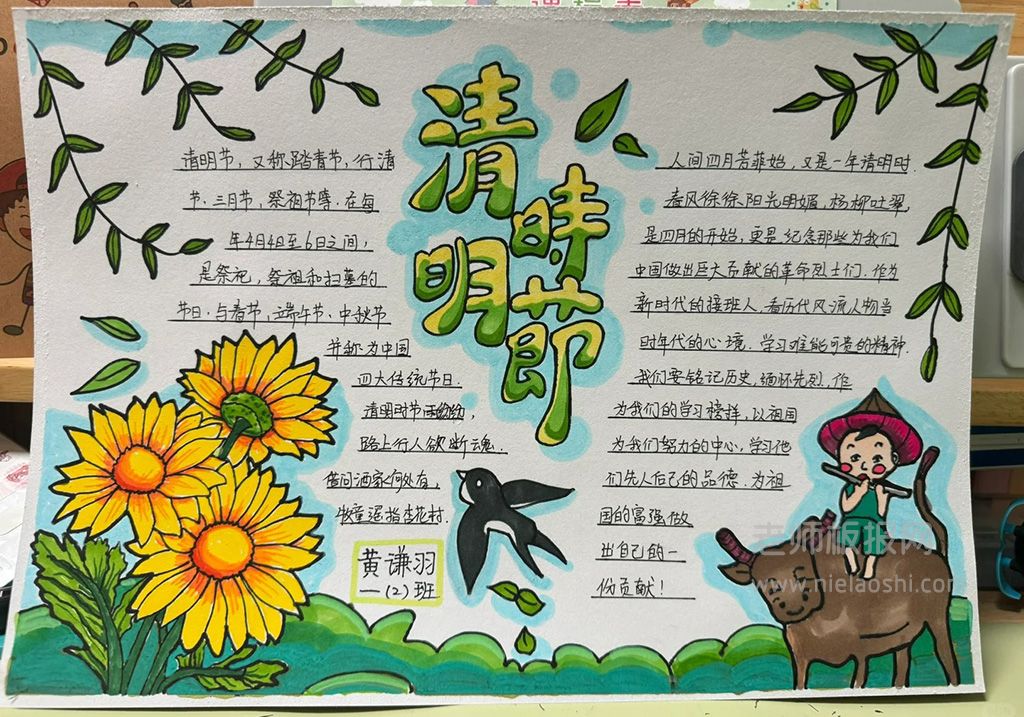 清明时節
清明节，又称踏青节，行清
节、三月节，祭祖节等．在每
年4月4日至6日之间，
是祭祀，祭祖和扫墓的
节日．与春节、端午节、中秋节
并称为中国
四大传统节日．
清明时节雨纷纷，
路上行人欲断魂．
借问酒家何处有，
牧童遥指杏花村．
黄谦羽
一(2)班
人间四月芳菲始，又是一年清明时．
春风徐徐，阳光明媚，杨柳吐翠，
是四月的开始，更是纪念那些为我们
中国做出巨大贡献的革命烈士们．作为
新时代的接班人，看历代风流人物当
时年代的心境．学习难能可贵的精神．
我们要铭记历史，缅怀先烈．作
为我们的学习榜样，以祖国
为我们努力的中心．学习他
们先人后己的品德．为祖
国的富强做
出自己的一
份贡献！
老师板报网
www.nielaoshi.com